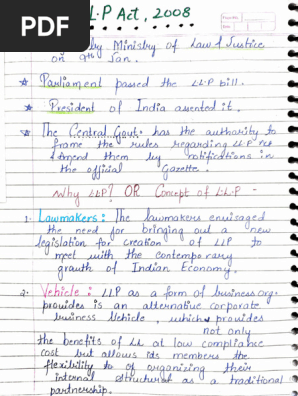 PDF
L.P Act, 2008
by Ministry of Law & Justice
on 9th Jan.
Parliament passed the LLP bill.
President of India assented it.
The Central Govt. has the authority to
frame the rules regarding LLP Act
& Amend them by notifications in
the official Gazette.
Why LLP? OR Concept of L.L.P -
1. Lawmakers: The lawmakers envisaged
the need for bringing out a new
legislation for creation of LLP to
meet with the contemporary
growth of Indian Economy.
2. Vehicle: LLP as a form of business org.
provides is an alternative corporate
business Vehicle, which provides
not only
the benefits of LL at low compliance
cost but allows its members the
flexibility to of organizing their
internal structured as a traditional
partnership.